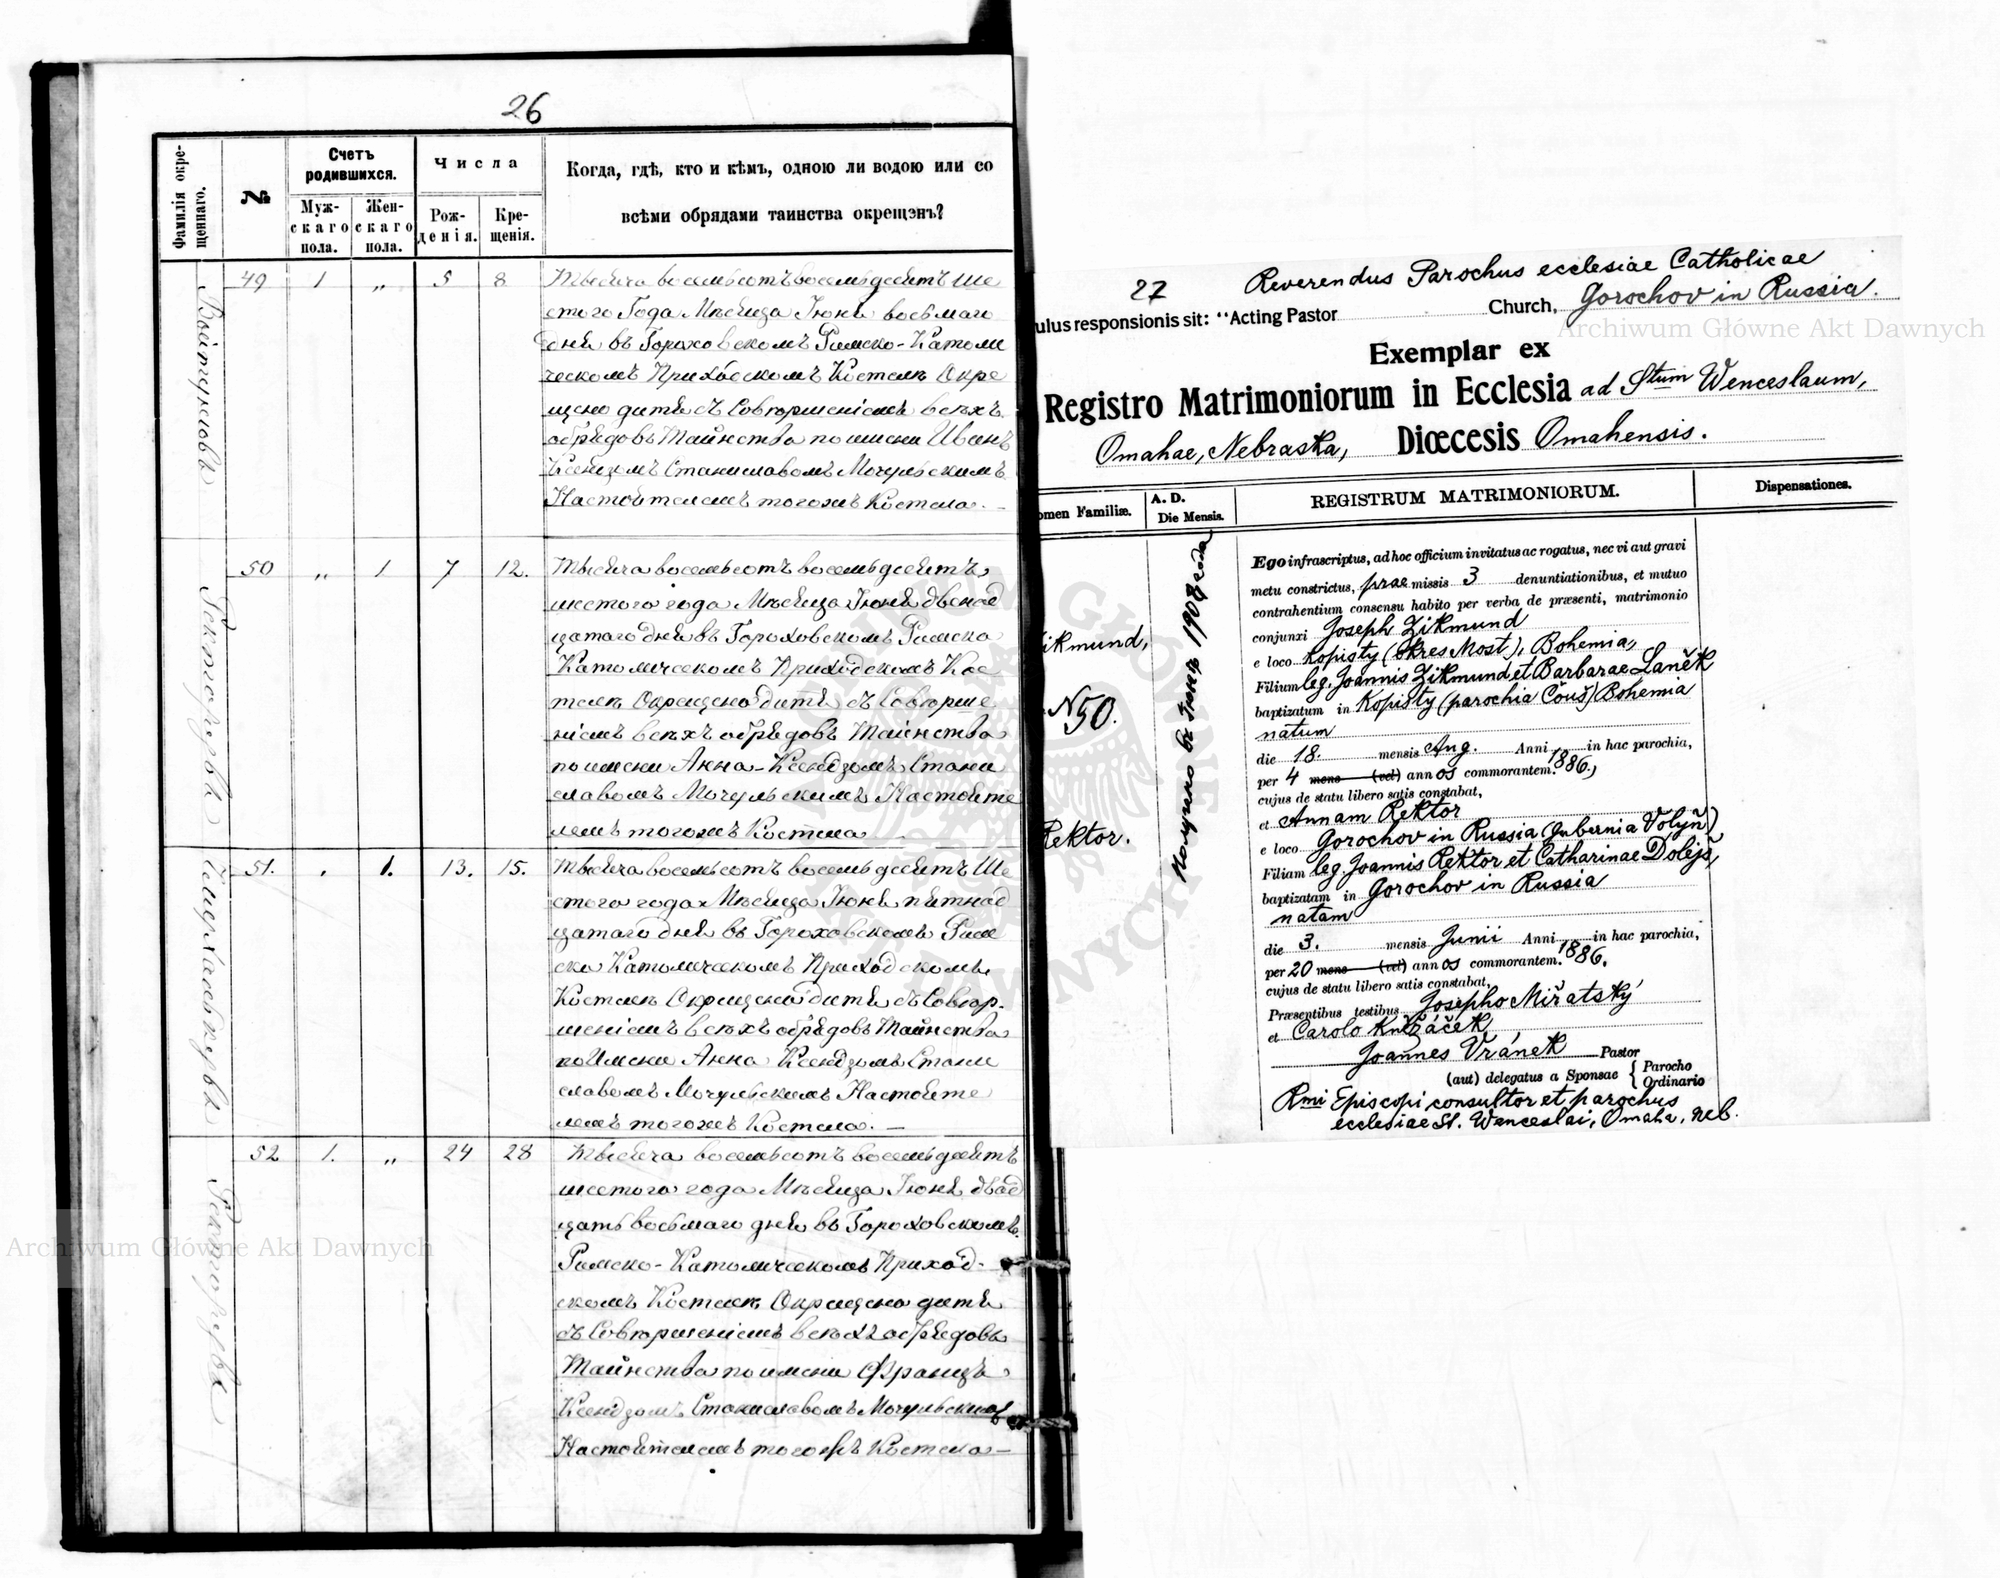 26
Фамилія окре-
щеннаго.
№
Счетъ
родившихся.
Муж-
скаго
пола.
Жен-
скаго
пола.
Числа
Рож-
денія.
Кре-
щенія.
Когда, гдѣ, кто и кѣмъ, одною ли водою или со
всѣми обрядами таинства окрещэнъ?
49 1 „ 5 8
Тысяча восемьсотъ восемьдесятъ ше
стого Года Мѣсяца Іюня восьмаго
дня въ Гороховскомъ Римско-Католи
ческомъ Приходскомъ Костелѣ Окре
щено дитя съ Совершеніемъ всѣхъ
обрядовъ Таинства по имени Иванъ
Ксендзомъ Станиславомъ Мочульскимъ
Настоятелемъ тогожъ Костела. —
Ректорерва
50 „ 1 7 12.
Тысяча восемьсотъ восемьдесятъ
шестого года Мѣсяца Іюня двенад
цатаго дня въ Гороховскомъ Римско
Католическомъ Приходскомъ Кос
телѣ Окрещено дитя съ Соверше
ніемъ всѣхъ обрядовъ Таинства
по имени Анна – Ксендзомъ Стани
славомъ Мочульскимъ Настояте
лемъ тогожъ Костела —
51. . 1. 13. 15.
Тысяча восемьсотъ восемьдесятъ Ше
стого года Мѣсяца Іюня пятнад
цатаго дня въ Гороховскомъ Рим
ско Католическомъ Приходскомъ
Костелѣ Окрещено дитя съ Совер-
шеніемъ всѣхъ обрядовъ Таинства
по Имени Анна Ксендзомъ Стани
славомъ Мочульскимъ Настояте
лемъ тогожъ Костела. —
52 1. „ 24 28
Тысяча восемьсотъ восемьдесятъ
шестого года Мѣсяца Іюня двад
цать восьмаго дня въ Гороховскомъ
Римско-Католическомъ Приход-
скомъ Костелѣ Окрещено дитя
съ Совершеніемъ всѣхъ обрядовъ
Таинства по имени Францъ
Ксендзомъ Станиславомъ Мочульскимъ
Настоятелемъ тогожъ Костела —
27
Reverendus Parochus ecclesiae Catholicae
ulus responsionis sit: "Acting Pastor Church, Gorochov in Russia.
Exemplar ex
Registro Matrimoniorum in Ecclesia ad Stum Wenceslaum,
Omahae, Nebraska, Diœcesis Omahensis.
omen Familiæ.
A. D.
Die Mensis.
REGISTRUM MATRIMONIORUM.
Dispensationes.
ikmund,
N50.
Rektor.
Получено въ Іюнѣ 1908 года
Ego infrascriptus, ad hoc officium invitatus ac rogatus, nec vi aut gravi
metu constrictus, praemissis 3 denuntiationibus, et mutuo
contrahentium consensu habito per verba de præsenti, matrimonio
conjunxi Joseph Zikmund
e loco Kopisty (okres Most), Bohemia,
Filium leg. Joannis Zikmund et Barbarae Laněk
baptizatum in Kopisty (parochia Čouš) Bohemia
natum
die 18. mensis Aug. Anni 1886., in hac parochia,
per 4 mens (vel) annos commorantem.
cujus de statu libero satis constabat,
et Annam Rektor
e loco Gorochov in Russia (Gubernia Volyň)
Filiam leg. Joannis Rektor et Catharinae Dolejš,
baptizatam in Gorochov in Russia
natam
die 3. mensis Junii Anni 1886. in hac parochia,
per 20 mens (vel) annos commorantem.
cujus de statu libero satis constabat,
Præsentibus testibus Josepho Miřatský
et Carolo
Joannes Vránek Pastor
(aut) delegatus a Sponsae { Parocho
Ordinario
Rmi Episcopi consultor et parochus
ecclesiae St. Wenceslai, Omaha, Neb.
Archiwum Główne Akt Dawnych
Archiwum Główne Akt Dawnych